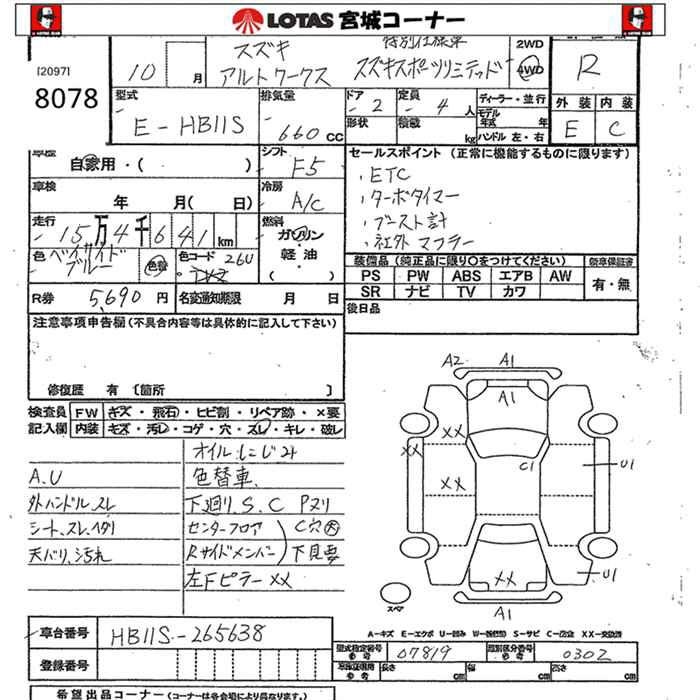 LOTAS 宮城コーナー
スズキ 特別仕様車 2WD
[2097] 10 月 アルトワークス スズキスポーツリミテッド 4WD R
8078
型式 排気量 ドア 2 定員 4 人 ディーラー・並行 外装 内装
E-HB11S 660 CC 形状 積載 kg モデル 年式 年 ハンドル 左・右 E C
車歴 自家用・( ) シフト F5 セールスポイント (正常に機能するものに限ります)
車検 年 月( 日) 冷房 A/C ・ETC
・ターボタイマー
走行 15万4千641km 燃料 ガソリン ・ブースト計
軽油 ・社外マフラー
( )
色 ベイサイドブルー 色替 色コード 26U
装備品 (純正品に限り○をつけてください) 新車保証書
PS PW ABS エアB AW 有・無
SR ナビ TV カワ
R券 5,690 円 名変通知期限 月 日
後日品
注意事項申告欄 (不具合内容等は具体的に記入して下さい)
修復歴 有 〔箇所 〕
検査員 FW キズ・飛石・ヒビ割・リペア跡・×要
記入欄 内装 キズ・汚レ・コゲ・穴・スレ・キレ・破レ
オイルにじみ
A.U 色替車
外ハンドル.スレ 下廻り.S.C Pヌリ
シート.スレ.ヘタリ センターフロア C穴大
天バリ.汚れ Rサイドメンバー 下見要
左Fピラー XX
A2 A1
A1
XX
XX
C1 U1
XX
XX
U1
スペア
A1
A-キズ E-エクボ U-凹み S-サビ C-腐食 XX-交換済
車台番号 HB11S-265638
登録番号
型式指定番号 参考 07819 類別区分番号 参考 0302
長さ cm 幅 cm 高さ cm
希望出品コーナー (コーナーは各会場により異なります。)